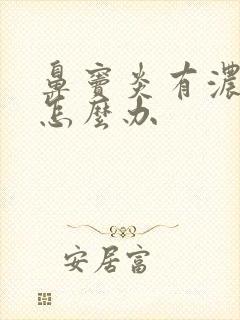 鼻竇炎有濃
怎麼办
安居富